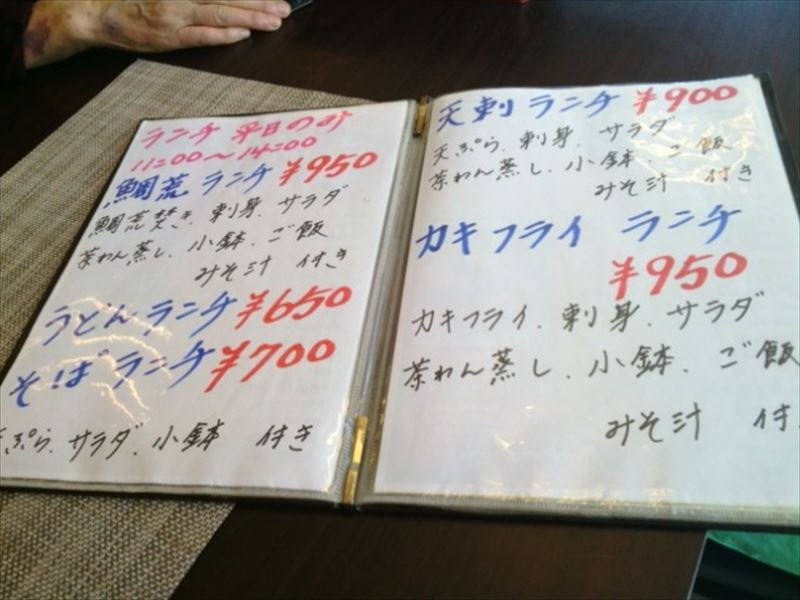 ランチ 平日のみ
11:00〜14:00
鯛荒 ランチ ¥950
鯛荒焚き、刺身、サラダ
茶わん蒸し、小鉢、ご飯
みそ汁 付き
うどんランチ ¥650
そばランチ ¥700
天ぷら、サラダ、小鉢 付き
天刺 ランチ ¥900
天ぷら、刺身、サラダ
茶わん蒸し、小鉢、ご飯
みそ汁 付き
カキフライ ランチ
¥950
カキフライ、刺身、サラダ
茶わん蒸し、小鉢、ご飯
みそ汁 付き